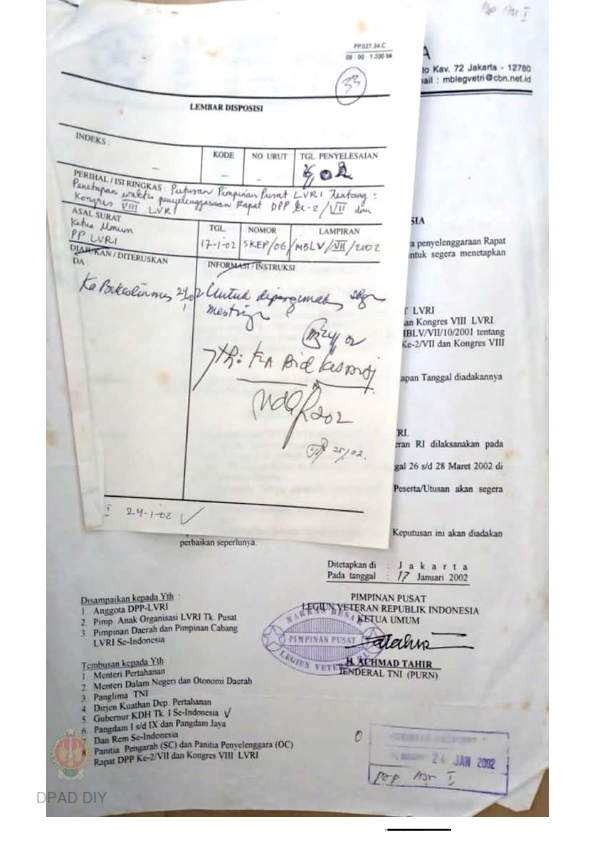 PP.027.34.C
33
LEMBAR DISPOSISI
INDEKS :
KODE
NO URUT
TGL. PENYELESAIAN
PERIHAL / ISI RINGKAS : Putusan Pimpinan Pusat LVRI Tentang :
Penetapan waktu penyelenggaraan Rapat DPP Ke-2/VII dan
Kongres VIII LVRI
ASAL SURAT
Ketua Umum
PP LVRI
TGL.
17-1-02
NOMOR
SKEP/06/MBLV/VII/2002
LAMPIRAN
DIAJUKAN / DITERUSKAN
INFORMASI / INSTRUKSI
Untuk dipergunakan
mestinya
25/02.
24-1-02 ✓
A
to Kav. 72 Jakarta - 12780
ail : mblegvetri@cbn.net.id
SIA
a penyelenggaraan Rapat
ntuk segera menetapkan
T LVRI
an Kongres VIII LVRI
MBLV/VII/10/2001 tentang
Ke-2/VII dan Kongres VIII
apan Tanggal diadakannya
RI.
eran RI dilaksanakan pada
gal 26 s/d 28 Maret 2002 di
Peserta/Utusan akan segera
Keputusan ini akan diadakan
perbaikan seperlunya.
Ditetapkan di : J a k a r t a
Pada tanggal : 17 Januari 2002
PIMPINAN PUSAT
LEGIUN VETERAN REPUBLIK INDONESIA
KETUA UMUM
MARKAS BESAR
PIMPINAN PUSAT
LEGIUN VETERAN
H. ACHMAD TAHIR
JENDERAL TNI (PURN)
Disampaikan kepada Yth :
1 Anggota DPP-LVRI
2 Pimp Anak Organisasi LVRI Tk Pusat
3 Pimpinan Daerah dan Pimpinan Cabang
LVRI Se-Indonesia
Tembusan kepada Yth
1 Menteri Pertahanan
2 Menteri Dalam Negeri dan Otonomi Daerah
3 Panglima TNI
4 Dirjen Kuathan Dep. Pertahanan
5 Gubernur KDH Tk I Se-Indonesia ✓
6 Pangdam I s/d IX dan Pangdam Jaya
7 Dan Rem Se-Indonesia
8 Panitia Pengarah (SC) dan Panitia Penyelenggara (OC)
Rapat DPP Ke-2/VII dan Kongres VIII LVRI
24 JAN 2002
DPAD DIY